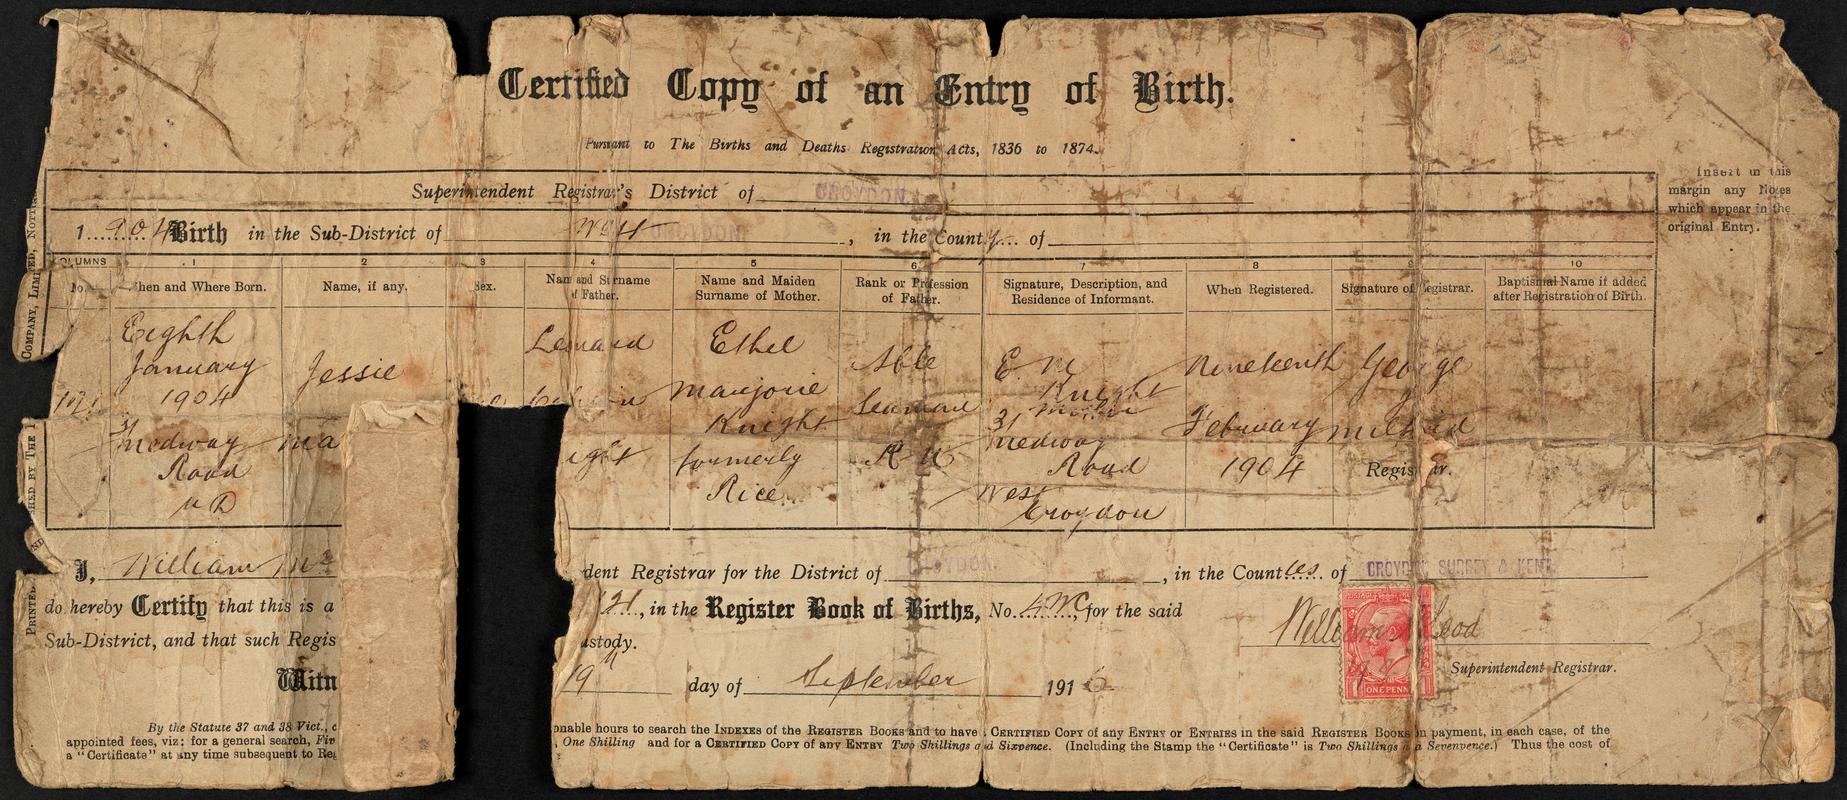 Certified Copy of an Entry of Birth.
Pursuant to The Births and Deaths Registration Acts, 1836 to 1874.
Superintendent Registrar's District of CROYDON.
1 904 Birth in the Sub-District of West CROYDON, in the County of
Insert in this
margin any Notes
which appear in the
original Entry.
COLUMNS 1 2 3 4 5 6 7 8 9 10
No. When and Where Born.
Name, if any.
Sex.
Name and Surname
of Father.
Name and Maiden
Surname of Mother.
Rank or Profession
of Father.
Signature, Description, and
Residence of Informant.
When Registered.
Signature of Registrar.
Baptismal Name if added
after Registration of Birth.
Eighth
January
1904
31
Medway
Road
U D
Jessie
Ma
Leonard
ight
Ethel
Marjorie
Knight
formerly
Rice
Able
Seaman
R N
E. M
Knight
Mother
31
Medway
Road
West
Croydon
Nineteenth
February
1904
George
Milford
Registrar.
I, William Mc
dent Registrar for the District of CROYDON., in the Counties of CROYDON, SURREY & KENT.
do hereby Certify that this is a
121, in the Register Book of Births, No. 4 WC, for the said
Sub-District, and that such Regis
ustody.
William McLeod
Superintendent Registrar.
Witn
19th day of September 1916
ONE PENNY
By the Statute 37 and 38 Vict., c
onable hours to search the INDEXES of the REGISTER BOOKS and to have a CERTIFIED COPY of any ENTRY or ENTRIES in the said REGISTER BOOKS on payment, in each case, of the
appointed fees, viz: for a general search, Fiv
, One Shilling and for a CERTIFIED COPY of any ENTRY Two Shillings and Sixpence. (Including the Stamp the "Certificate" is Two Shillings and Sevenpence.) Thus the cost of
a "Certificate" at any time subsequent to Reg
PRINTED
SHED BY THE
COMPANY, LIMITED, NOTTIN